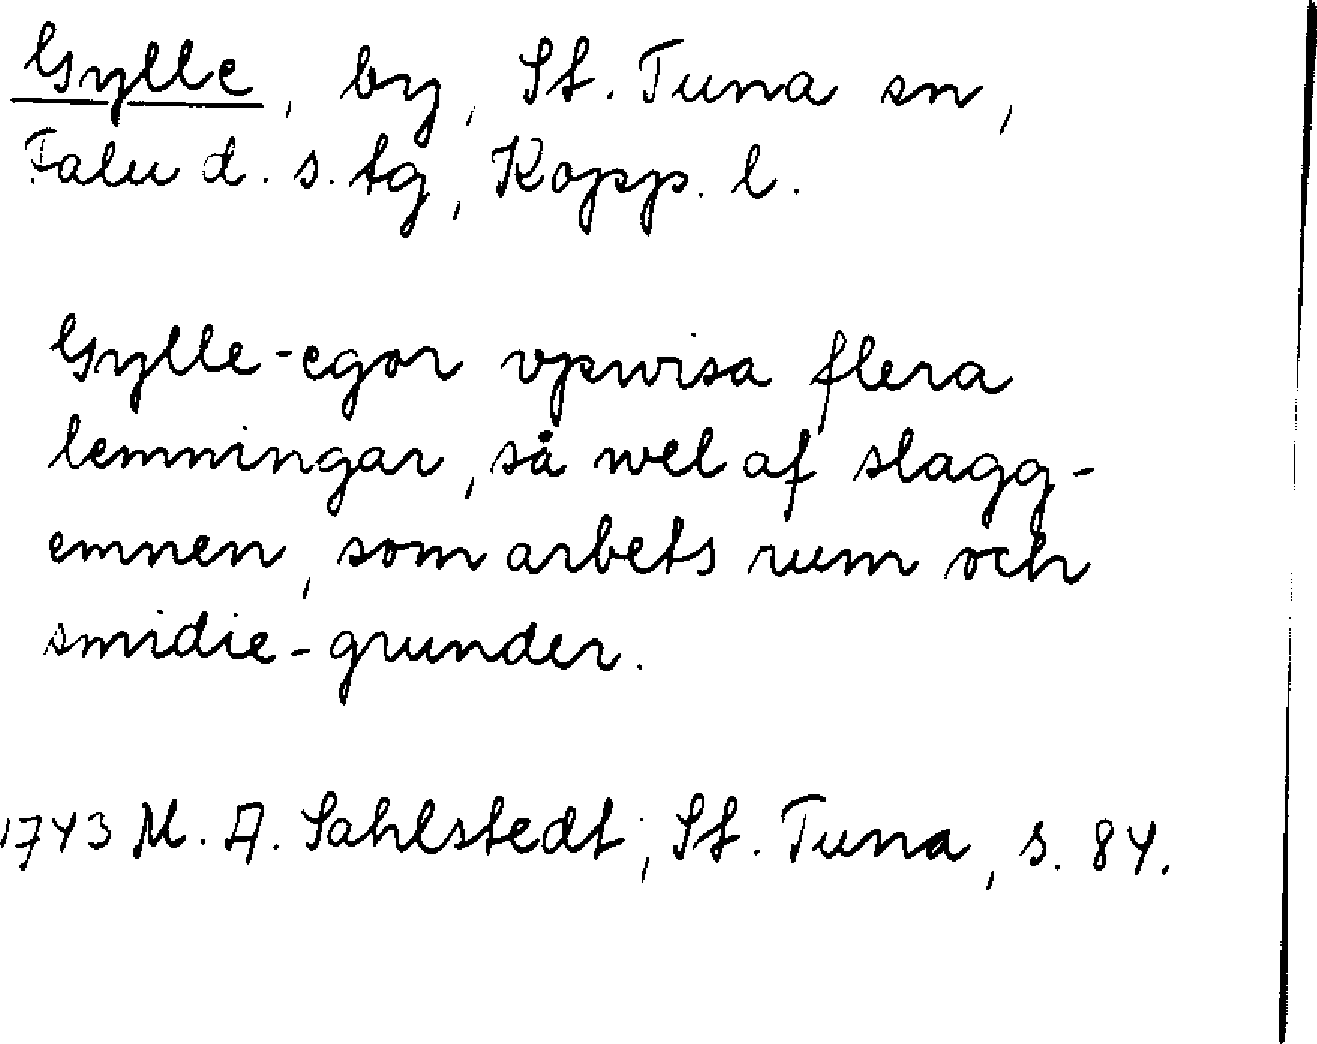 Gylle, by, St. Tuna sn,
Falu d. s. tg, Kopp. l.
Gylle-egor vpwisa flera
lemningar, så wel af slagg-
emnen, som arbets rum och
smidie-grunder.
1743 M. A. Sahlstedt, St. Tuna, s. 84.